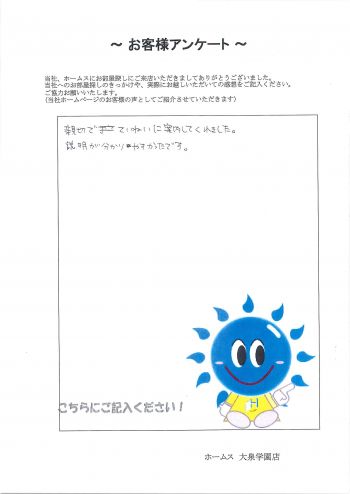 ～ お客様アンケート ～
当社、ホームスにお部屋探しにご来店いただきましてありがとうございました。
当社へのお部屋探しのきっかけや、実際にお越しいただいての感想をご記入ください。
ご協力お願いいたします。
(当社ホームページのお客様の声としてご紹介させていただきます)
親切で ていねいに案内してくれました。
説明が分かりやすかったです。
H
こちらにご記入ください！
ホームス 大泉学園店